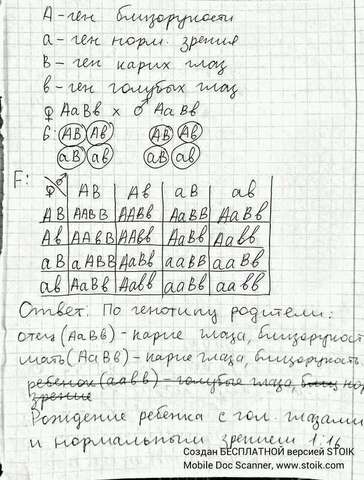 А - ген близорукости
а - ген норм. зрения
В - ген карих глаз
в - ген голубых глаз
♀ АаВв × ♂ АаВв
G: АВ Ав АВ Ав
аВ ав аВ ав
F:
♀ ♂ АВ Ав аВ ав
АВ ААВВ ААВв АаВВ АаВв
Ав ААВв ААвв АаВв Аавв
аВ аАВВ АаВв ааВВ ааВв
ав АаВв Аавв ааВв аавв
Ответ: По генотипу родители:
отец (АаВв) - карие глаза, близорукост
мать (АаВв) - карие глаза, близорукость
ребенок (аавв) - голубые глаза, близ нор
зрение
Рождение ребенка с гол. глазами
и нормальным зрением 1:16
Создан БЕСПЛАТНОЙ версией STOIK
Mobile Doc Scanner, www.stoik.com